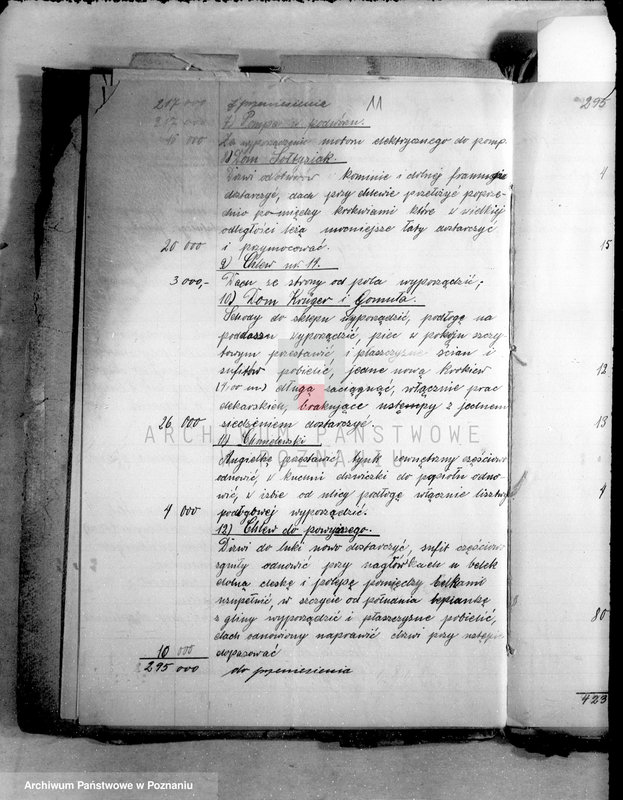 11
217 000 z przeniesienia
7) Pompa w podwórzu.
15 000 Za wyporządzenie motoru elektrycznego do pomp.
8) Dom Sołtysiak
Drzwi do otworów komnie i dolnej framugie
dostarczyć, dach przy drzewie przełożyć poprze-
dnio po-między krokwiami które w wielkiej
odległości leżą mocniejsze łaty dostarczyć
20 000 i przymocować.
9) Chlew nr. 14.
3 000,- Dach ze strony od pola wyporządzić,
10) Dom Krüger i Gomuła.
Schody do sklepu wyporządzić, podłogę na
poddaszu wyporządzić, piec w pokoju szczy-
towym przestawić, i płaszczyzne ścian i
sufitów pobielić, jedne nową krokiew
długą zaciągnąć, włącznie prac
dekarskich, brakujące ustempy z jednem
26 000 siedzeniem dostarczyć.
11) Chmielewski
Angielkę przestawić, tynk zewnętrzny częściowo
odnowić, w kuchni drzwiczki do popiołu odno-
wić, w izbie od ulicy podłogę włącznie listwy
4 000 podłogowej wyporządzić.
12) Chlew do powyższego.
Drzwi do luki nowe dostarczyć, sufit częściowo
zgniły odnowić przy nagłówkach u belek
dolną deskę i polepę pomiędzy belkami
uzupełnić, w szczycie od południa lepiankę
z gliny wyporządzić i płaszczyzne pobielić,
dach odnowiony naprawić drzwi przy ustępie
10 000 dopasować
295 000 do przeniesienia
295
4
15
12
13
4
80
423
ARCHIWUM PAŃSTWOWE
W POZNANIU
Archiwum Państwowe w Poznaniu